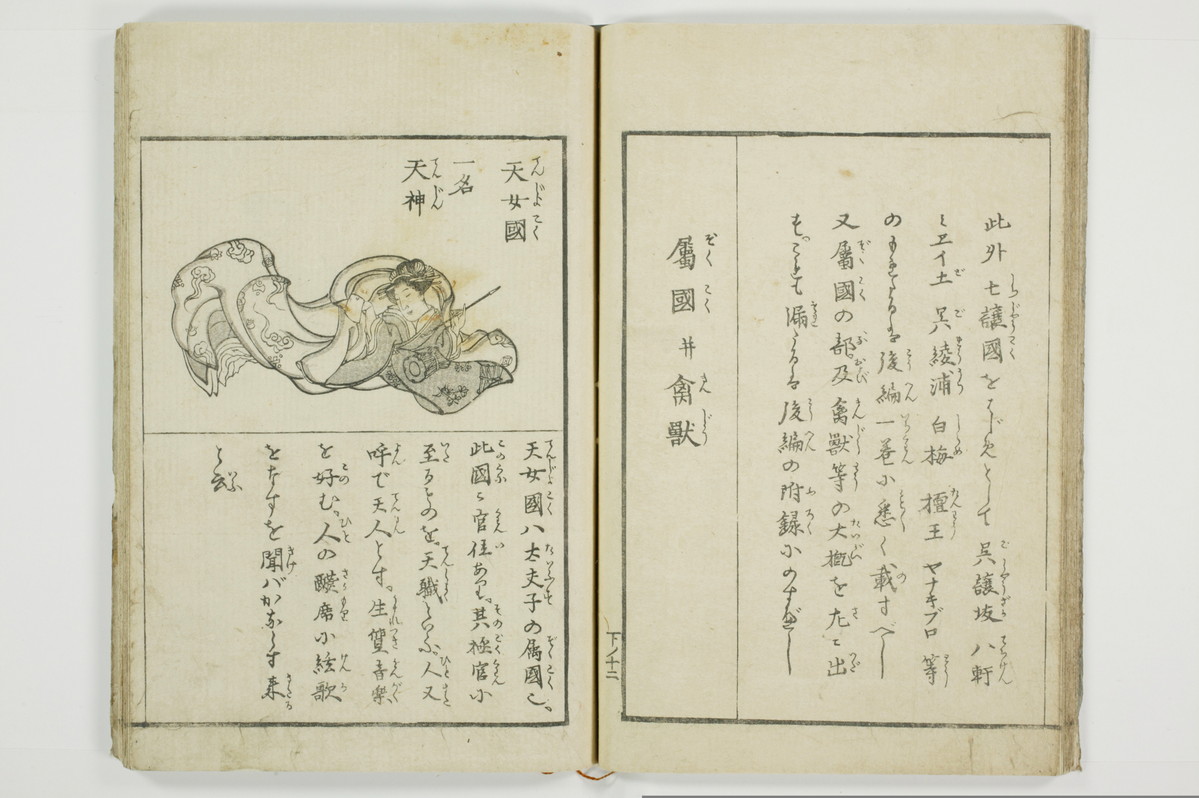 此外七譲國をはじめとして呉譲坂八軒
ミエイ土呉綾浦白梅檀王ヤナキブロ等
のもれたるは後編一巻に悉く載すべし
又屬國の部及禽獣等の大概を尤に出
もつとも漏たるは後編の附録にのすべし
屬國并禽獣
下ノ十二
天女國
一名
天神
天女國ハ太夫子の属國也。
此國に官位あり。其極官に
至るものを。天職といふ。人又
呼で天人とす。生質音楽
を好む。人の醼席に絃歌
をなすを聞バかならず来
と云